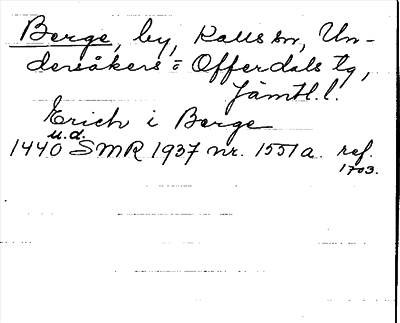 Berge, by, Kalls sn, Un-
dersåkers o Offerdals tg,
Jämtl. l.
Erich i Berge
u.d.
1440 SMR 1937 nr. 1551a. ref.
1703.